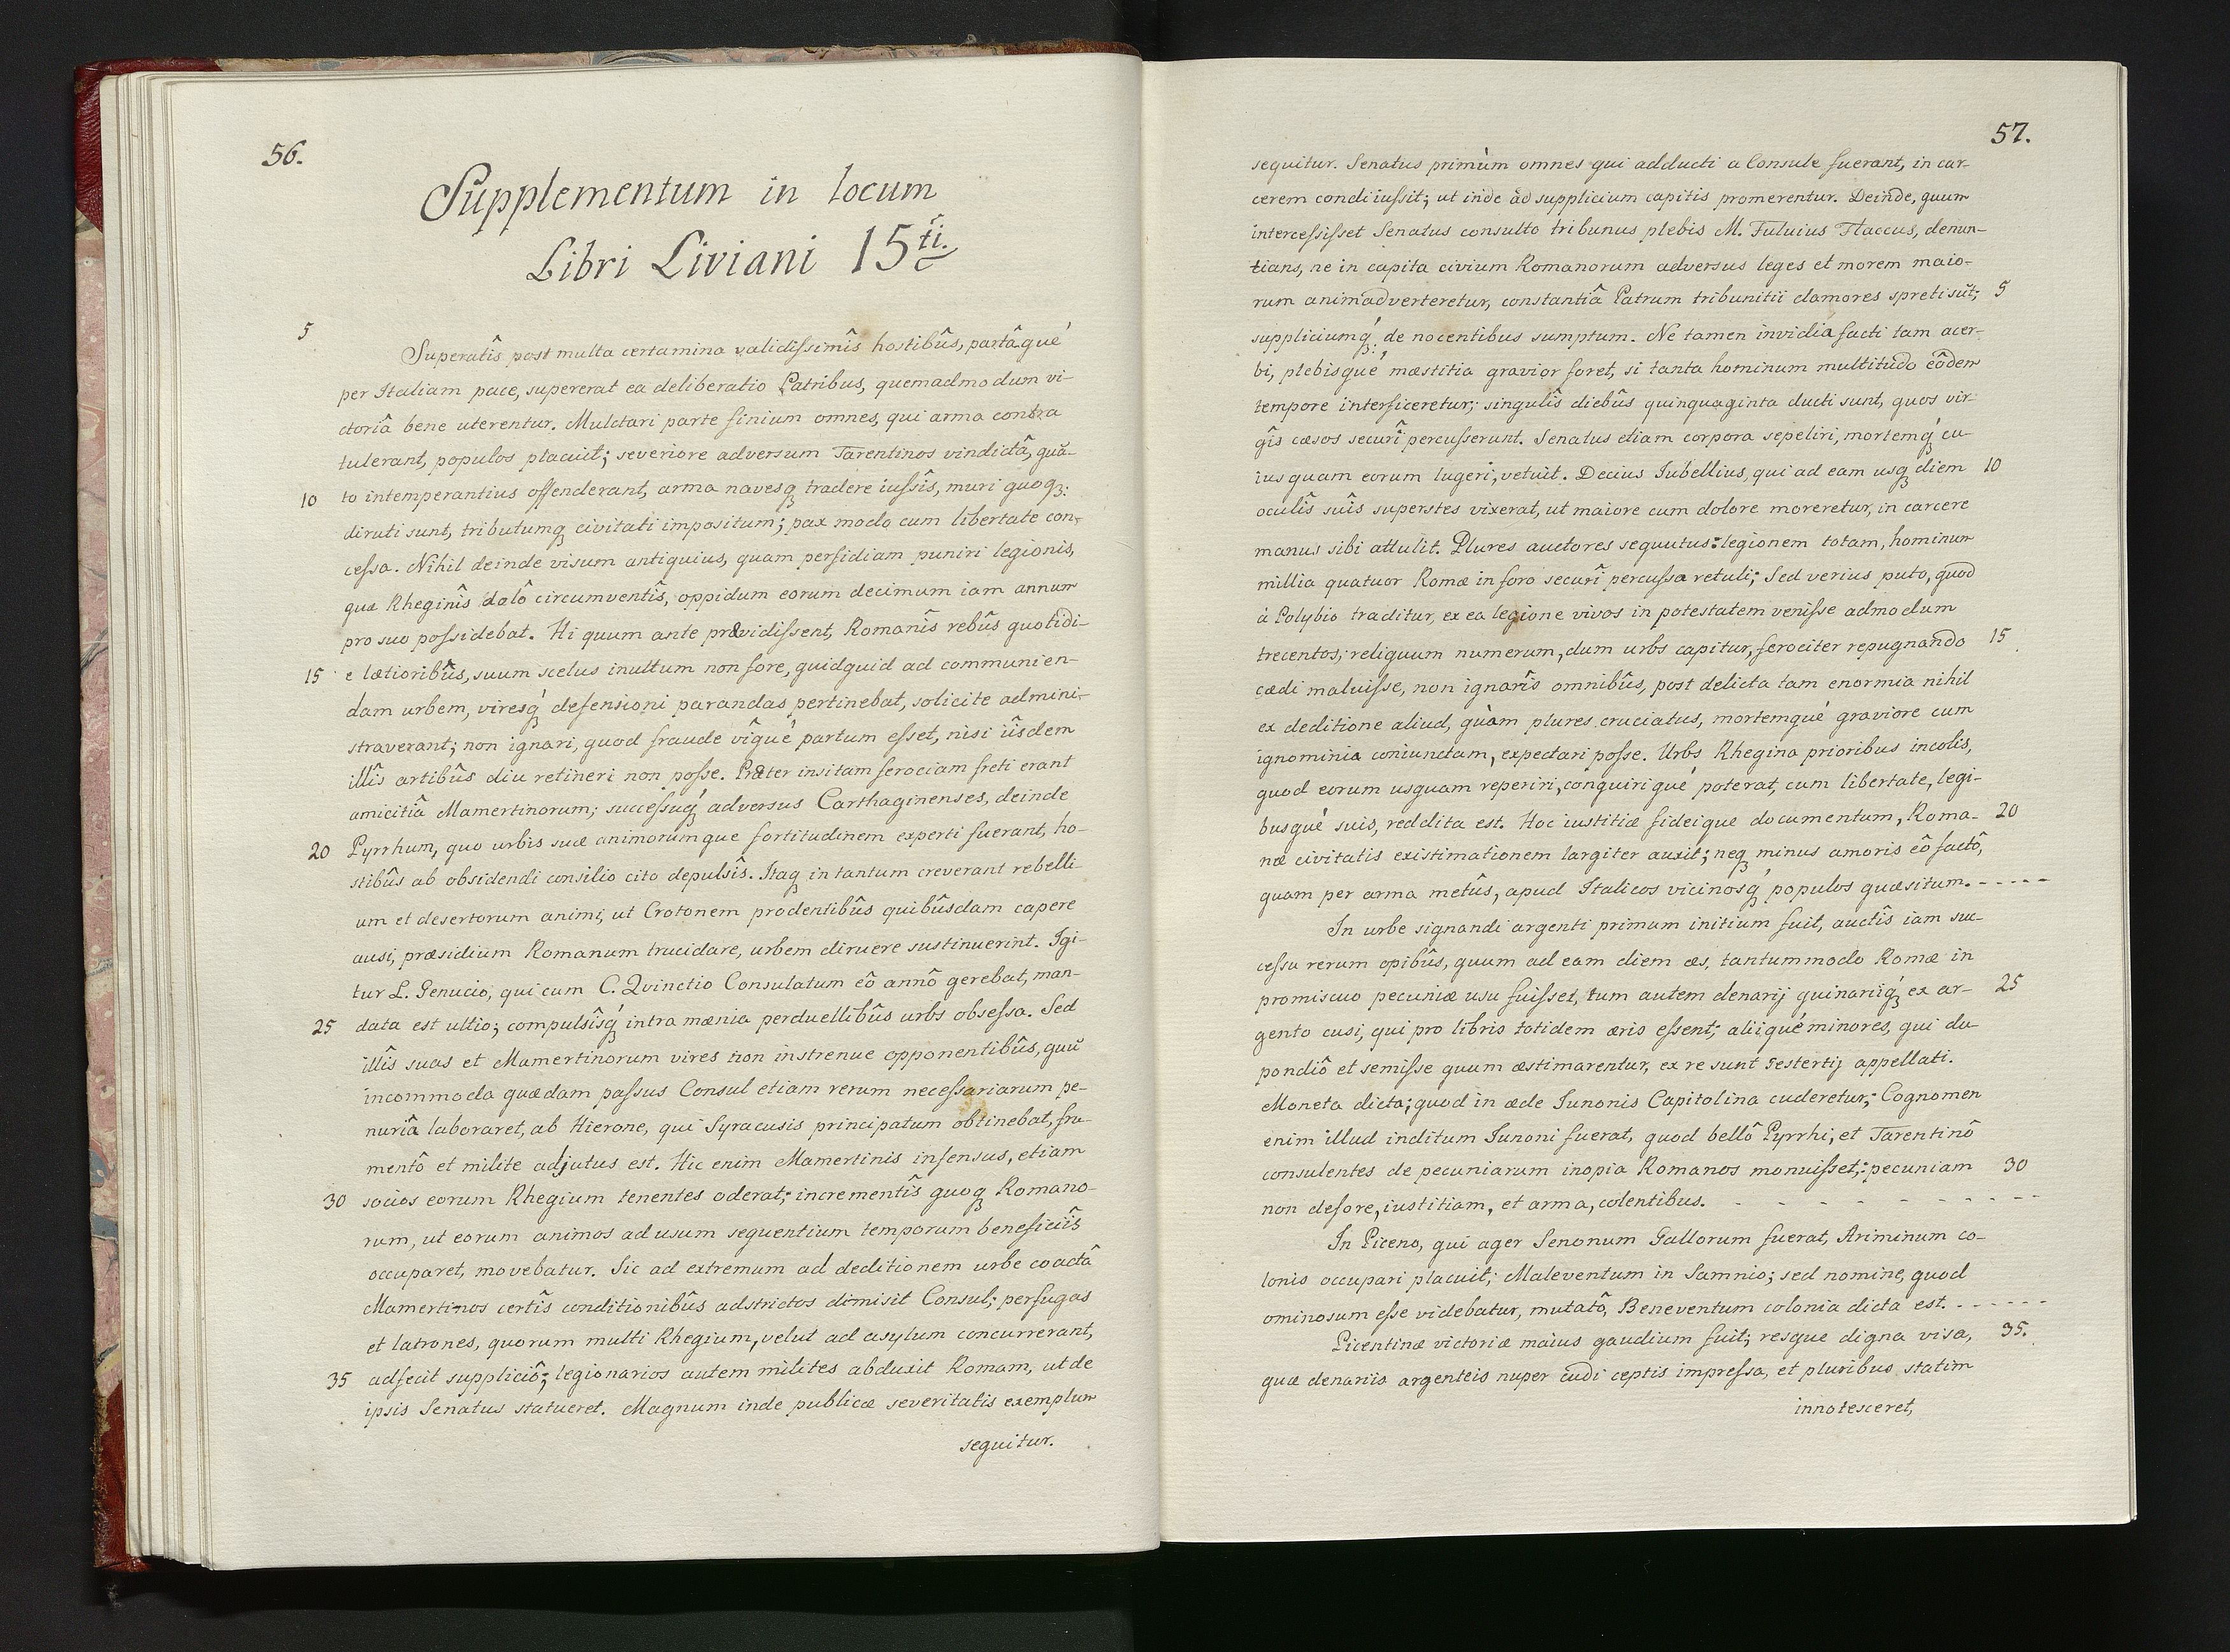 56.
Supplementum in locum
Libri Liviani 15ti.
5
Superatîs post multa certamina validissimîs hostibûs, partâqué
per Italiam pace, supererat ea deliberatio Patribus, quemadmodum vi-
ctoriâ bene uterentur. Mulctari parte finium omnes, qui arma contra
tulerant, populos placuit; severiore adversum Tarentinos vindictâ, quā-
10 to intemperantius offenderant, arma navesqꝫ tradere iussîs, muri quoqꝫ:
diruti sunt, tributumqꝫ civitati impositum; pax modo cum libertate con-
cessa. Nihil deinde visum antiquius, quam perfidiam puniri legionis,
quæ Rheginîs dolô circumventîs, oppidum eorum decimum iam annum
pro suo possidebat. Hi quum ante prævidissent, Romanîs rebûs quotidi-
15 e lætioribûs, suum scelus inultum non fore, quidquid ad communien-
dam urbem, viresqꝫ́ defensioni parandas pertinebat, solicite admini-
straverant; non ignari, quod fraude vîqué partum esset, nisi iîsdem
illîs artibûs diu retineri non posse. Præter insitam ferociam freti erant
amicitiâ Mamertinorum; successuqꝫ́ adversus Carthaginenses, deinde
20 Pyrrhum, quo urbis suæ animorumque fortitudinem experti fuerant, ho-
stibûs ab obsidendi consilio cito depulsîs. Itaqꝫ in tantum creverant rebelli-
um et desertorum animi, ut Crotonem prodentibûs quibûsdam capere
ausi, præsidium Romanum trucidare, urbem diruere sustinuerint. Igi-
tur L. Genucio, qui cum C. Qvinctio Consulatum eô annô gerebat, man-
25 data est ultio; compulsîsqꝫ́ intra mænia perduellibûs urbs obsessa. Sed
illîs suas et Mamertinorum vires non instrenue opponentibûs, quū
incommoda quædam passus Consul etiam rerum necessariarum pe-
nuriâ laboraret, ab Hierone, qui Syracusis principatum obtinebat, fru-
mentô et milite adjutus est. Hic enim Mamertinis infensus, etiam
30 socios eorum Rhegium tenentes oderat; incrementîs quoqꝫ Romano-
rum, ut eorum animos ad usum sequentium temporum beneficiîs
occuparet, movebatur. Sic ad extremum ad deditionem urbe coactâ
Mamertinos certîs conditionibûs adstrictos dimisit Consul; perfugas
et latrones, quorum multi Rhegium, velut ad asylum concurrerant,
35 adfecit suppliciô; legionarios autem milites abduxit Romam, ut de
ipsis Senatus statueret. Magnum inde publicæ severitatis exemplum
sequitur.
57.
sequitur. Senatus primùm omnes qui adducti a Consule fuerant, in car-
cerem condi iussit; ut inde ad supplicium capitis promerentur. Deinde, quum
intercessisset Senatus consulto tribunus plebis M. Fuluius Flaccus, denun-
tians, ne in capita civium Romanorum adversus leges et morem maio-
rum animadverteretur, constantiâ Patrum tribunitii clamores spreti sūt; 5
suppliciumqꝫ́ de nocentibus sumptum. Ne tamen invidia facti tam acer-
bi, plebisqué mæstitia gravior foret, si tanta hominum multitudo eôdem
tempore interficeretur; singulîs diebûs quinquaginta ducti sunt, quos vir-
gîs cæsos securî percusserunt. Senatus etiam corpora sepeliri, mortemqꝫ́ cu-
iusquam eorum lugeri, vetuit. Decius Iubellius, qui ad eam usqꝫ diem 10
oculîs suîs superstes vixerat, ut maiore cum dolore moreretur, in carcere
manus sibi attulit. Plures auctores sequutus: legionem totam, hominum
millia quatuor Romæ in foro securî percussa retuli; Sed verius puto, quod
à Polybio traditur, ex ea legione vivos in potestatem venisse admodum
trecentos; reliquum numerum, dum urbs capitur, ferociter repugnando 15
cædi maluisse, non ignarîs omnibûs, post delicta tam enormia nihil
ex deditione aliud, quàm plures cruciatus, mortemqué graviore cum
ignominia coniunctam, expectari posse. Urbs Rhegina prioribus incolis,
quod eorum usquam reperiri, conquiriqué poterat, cum libertate, legi-
busqué suis, reddita est. Hoc iustitiæ fideique documentum, Roma- 20
næ civitatis existimationem largiter auxit; neqꝫ minus amoris eô factô,
quam per arma metûs, apud Italicos vicinosqꝫ́ populos quæsitum. - - - - -
In urbe signandi argenti primum initium fuit, auctîs iam suc-
cessu rerum opibûs, quum ad eam diem æs, tantummodo Romæ in
promiscuo pecuniæ usu fuisset, tum autem denarij quinariiqꝫ́ ex ar- 25
gento cusi, qui pro libris totidem æris essent; aliiqué minores, qui du-
pondiô et semisse quum æstimarentur, ex re sunt sestertij appellati.
Moneta dicta; quod in æde Iunonis Capitolina cuderetur; Cognomen
enim illud inditum Iunoni fuerat, quod bellô Pyrrhi, et Tarentinô
consulentes de pecuniarum inopia Romanos monuisset; pecuniam 30
non defore, iustitiam, et arma, colentibus. - - - - - - - - -
In Piceno, qui ager Senonum Gallorum fuerat, Ariminum co-
lonis occupari placuit; Maleventum in Samnio; sed nomine, quod
ominosum esse videbatur, mutatô, Beneventum colonia dicta est. - - - - - -
Picentinæ victoriæ maius gaudium fuit; resque digna visa, 35.
quæ denariis argenteis nuper cudi ceptis impressa, et pluribus statim
innotesceret,